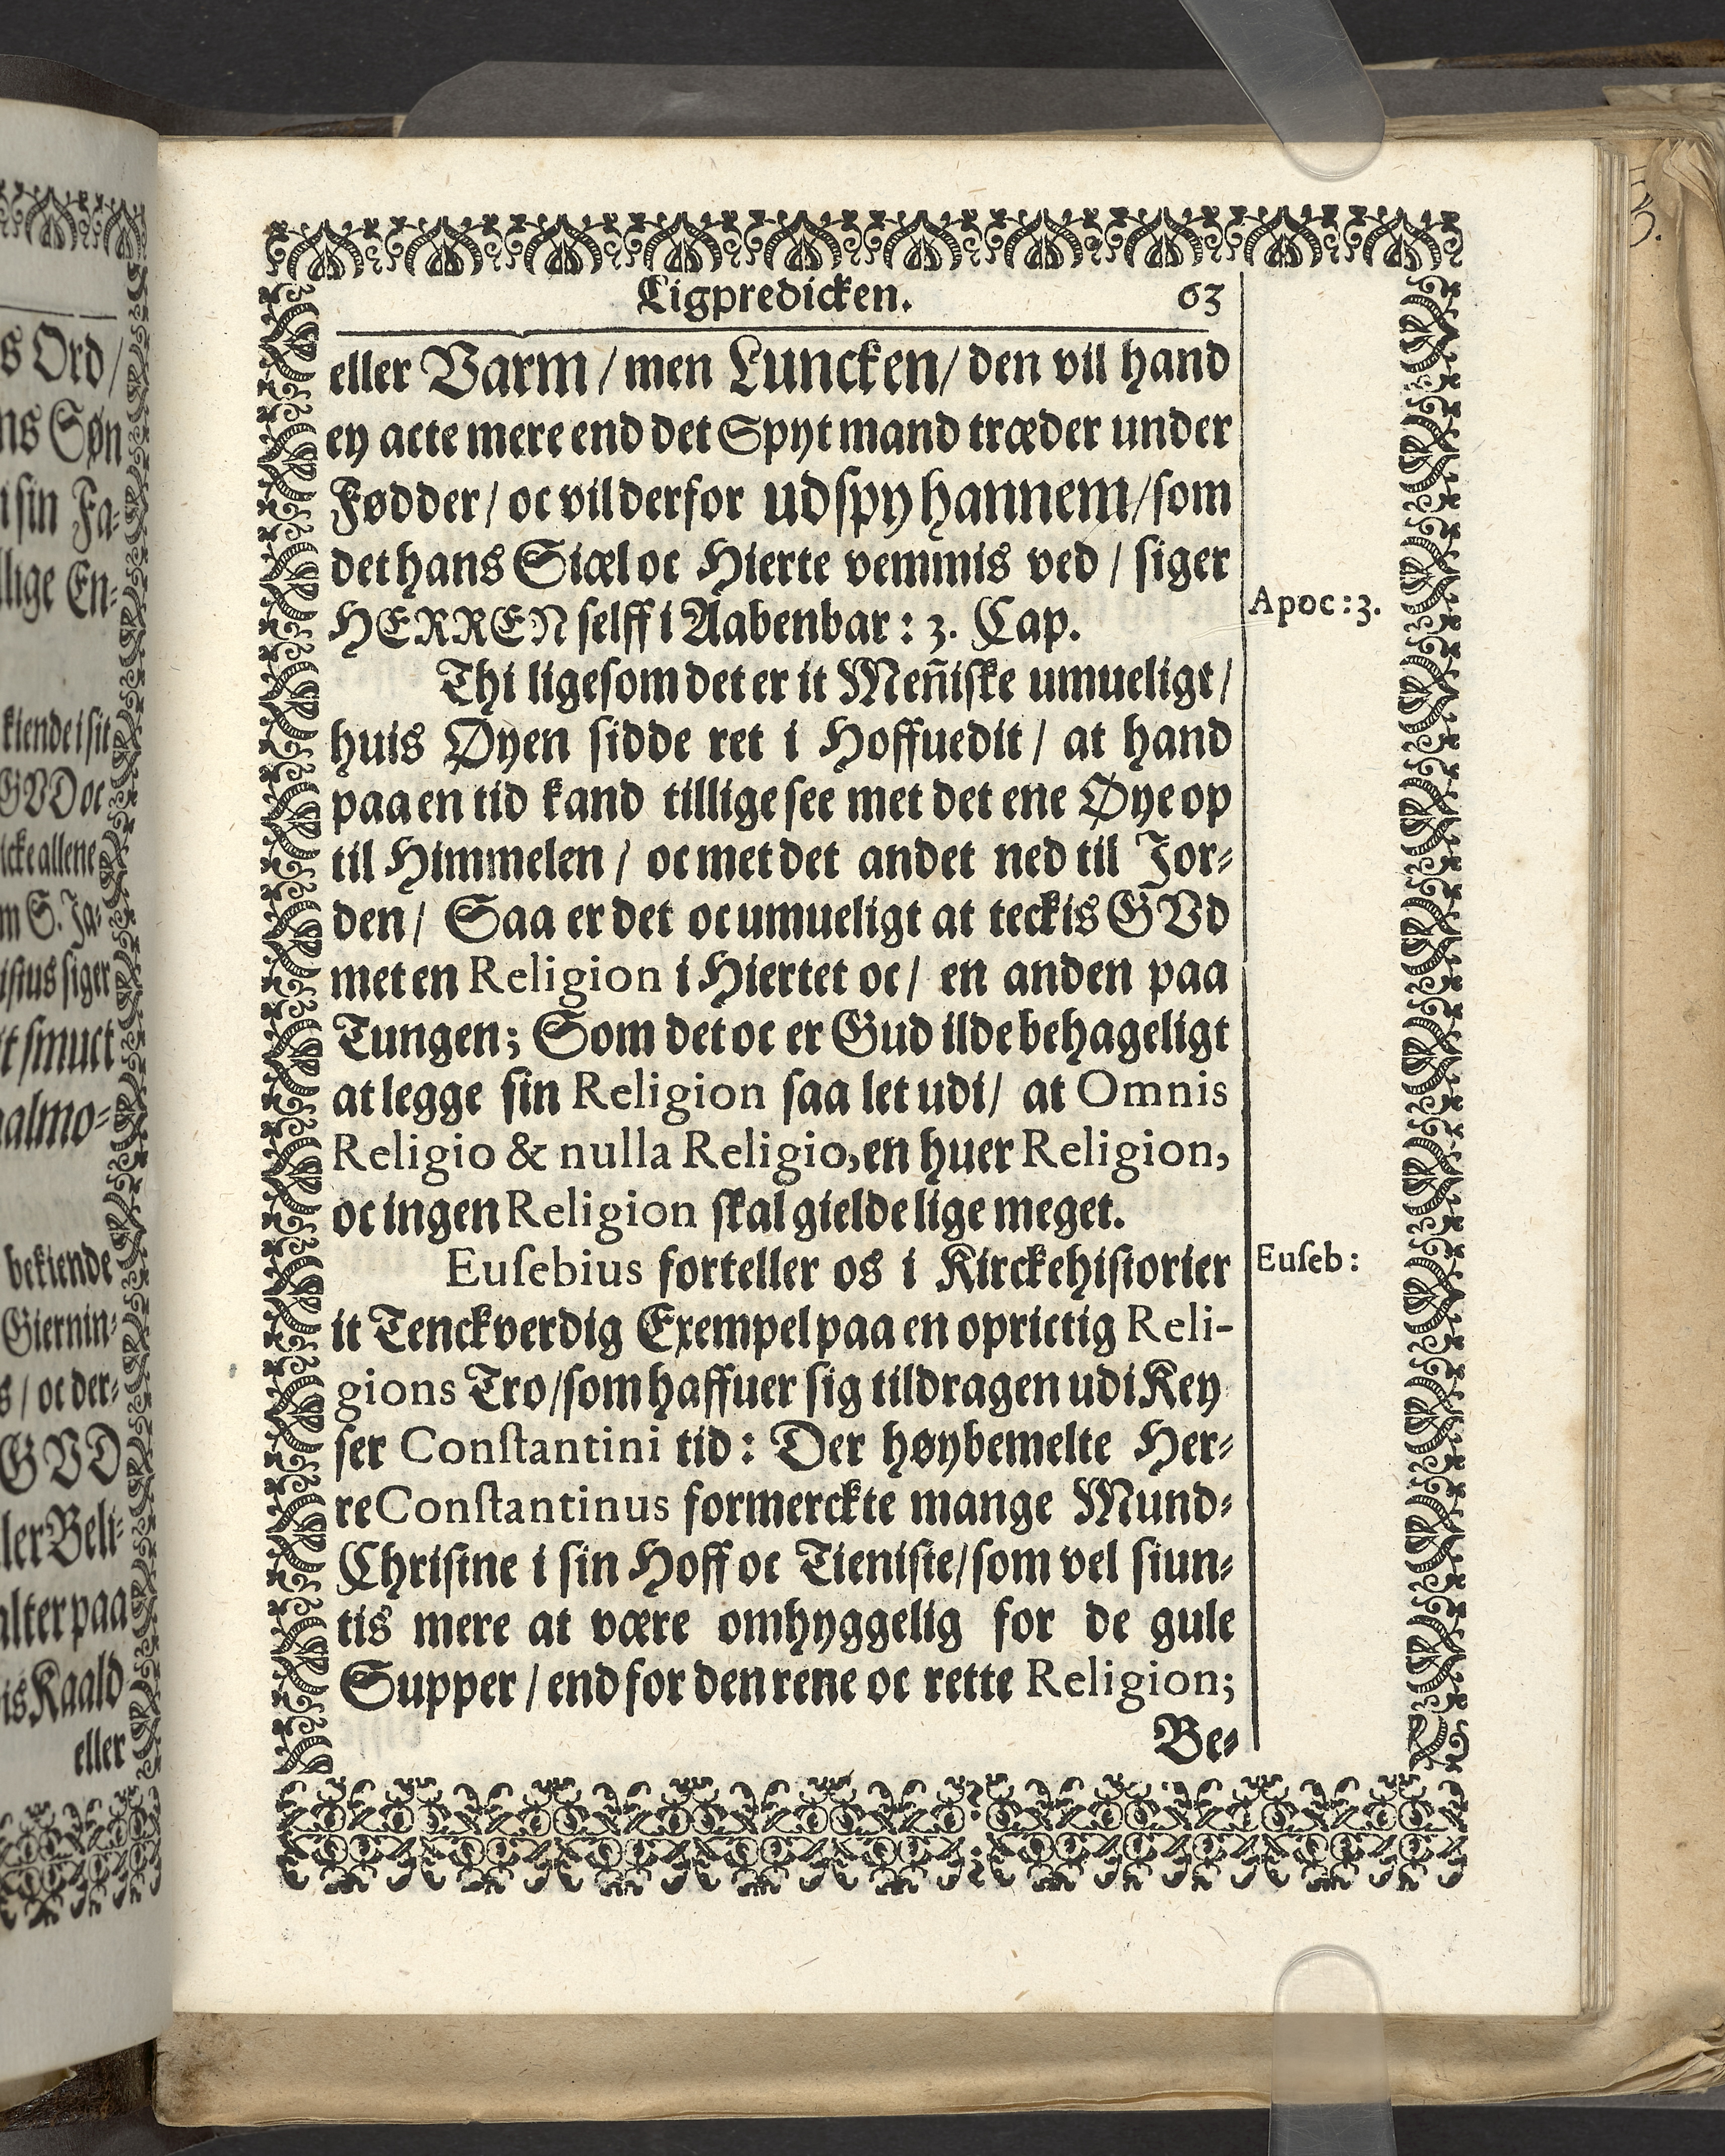 s Ord/
ns Søn
i sin Fa-
llige En-
kiende i sit
GVD oc
icke allene
m S. Ja-
istus siger
bekiende
Giernin-
s / oc der-
GVD
ler Beli-
alter paa
is Kaald
eller
Ligpredicken. 63
eller Varm / men Luncken / den vil hand
ey acte mere end det Spyt mand træder under
Fødder / oc vil derfor udspy hannem / som
det hans Siæl oc Hierte vemmis ved / siger
HERREN selff i Aabenbar : 3. Cap.
Apoc : 3.
Thi ligesom det er it Meñiske umueligt /
huis Øyen sidde ret i Hoffuedit / at hand
paa en tid kand tillige see met det ene Øye op
til Himmelen / oc met det andet ned til Jor-
den / Saa er det oc umueligt at teckis GVd
met en Religion i Hiertet oc / en anden paa
Tungen; Som det oc er Gud ilde behageligt
at legge sin Religion saa let udi / at Omnis
Religio & nulla Religio, en huer Religion,
oc ingen Religion skal gielde lige meget.
Euſebius forteller os i Kirckehistorier
Euſeb :
it Tenckverdig Exempel paa en oprictig Reli-
gions Tro / som haffuer sig tildragen udi Key
ser Conſtantini tid : Der høybemelte Her-
re Conſtantinus formerckte mange Mund-
Christne i sin Hoff oc Tieniste / som vel siun-
tis mere at være omhyggelig for de gule
Supper / end for den rene oc rette Religion;
Be-